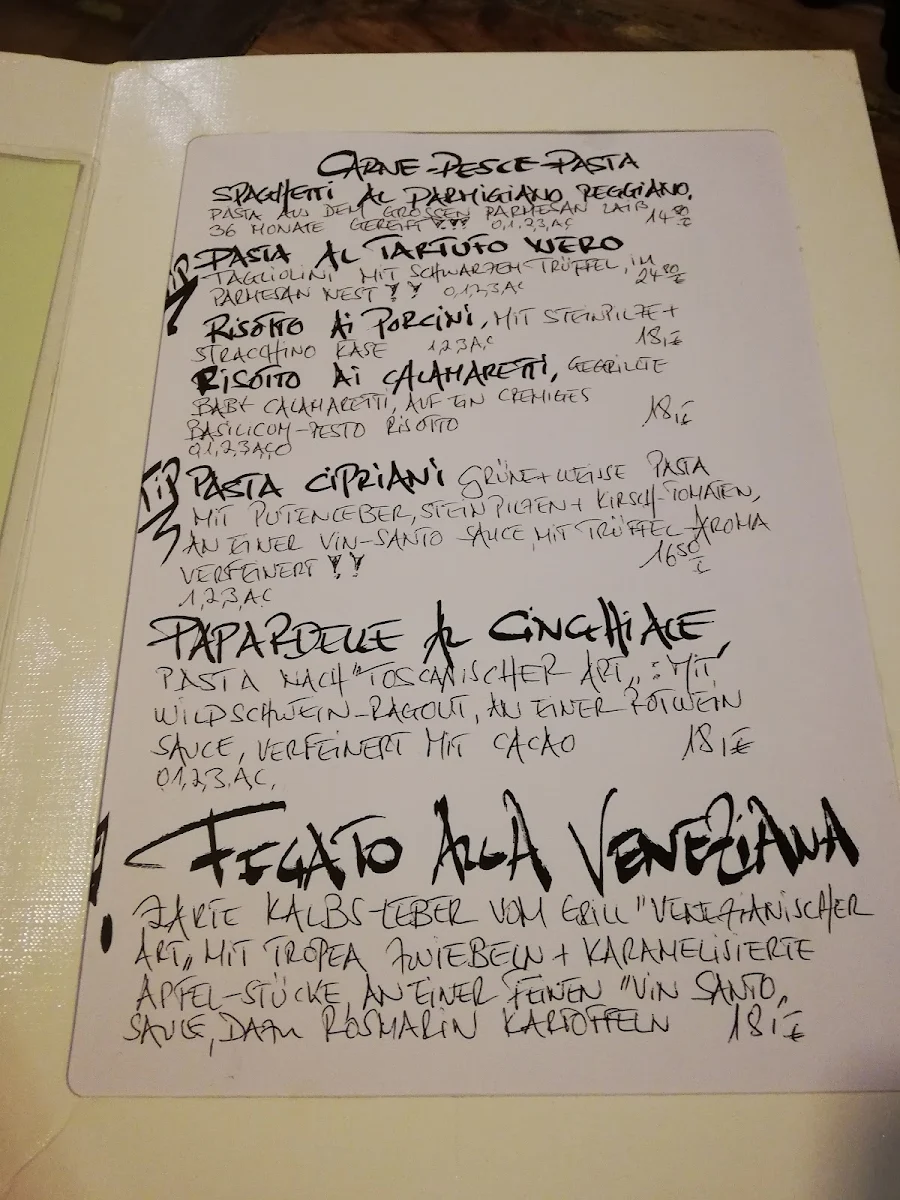 CARNE-PESCE-PASTA
SPAGHETTI AL PARMIGIANO REGGIANO,
PASTA AUS DEM GROSSEN PARMESAN LAIB
36 MONATE GEREIFT!!! 0,1,2,3,A,C 14,80 €
TIP PASTA AL TARTUFO NERO
TAGLIOLINI MIT SCHWARZEM TRÜFFEL, IM
PARMESAN NEST!! 0,1,2,3,A,C 24,80 €
RISOTTO AI PORCINI, MIT STEINPILZE +
STRACCHINO KÄSE 1,2,3,A,C 18,- €
RISOTTO AI CALAMARETTI, GEGRILLTE
BABY CALAMARETTI, AUF EIN CREMIGES
BASILICUM-PESTO RISOTTO 18,- €
0,1,2,3,A,C,O
TIP PASTA CIPRIANI GRÜNE + WEISSE PASTA
MIT PUTENLEBER, STEINPILZEN + KIRSCH-TOMATEN,
AN EINER VIN-SANTO SAUCE, MIT TRÜFFEL AROMA
VERFEINERT!! 16,50 €
1,2,3,A,C
PAPARDELLE AL CINGHIALE,
PASTA NACH "TOSCANISCHER ART,,: MIT
WILDSCHWEIN-RAGOUT, AN EINER ROTWEIN
SAUCE, VERFEINERT MIT CACAO 18,- €
0,1,2,3,A,C,
! FEGATO ALLA VENEZIANA
ZARTE KALBS-LEBER VOM GRILL "VENEZIANISCHER
ART,, MIT TROPEA ZWIEBELN + KARAMELISIERTE
APFEL-STÜCKE, AN EINER FEINEN "VIN SANTO,,
SAUCE, DAZU ROSMARIN KARTOFFELN 18,- €